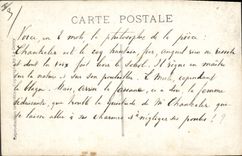 CARTE POSTALE
Voici, en 2 mots, la philosophie de la pièce:
Chantecler est le coq fier, auquel rien ne résiste
et dont la voix fait lever le soleil. Il règne en maître
sur la nature et sur son poulailler. Le merle, cependant
le blague. Mais, arrive la faisane, c. à. d. la femme
séduisante, qui trouble la quiétude de Mr Chantecler que
se laisse aller à ses charmes et néglige ses poules! ?